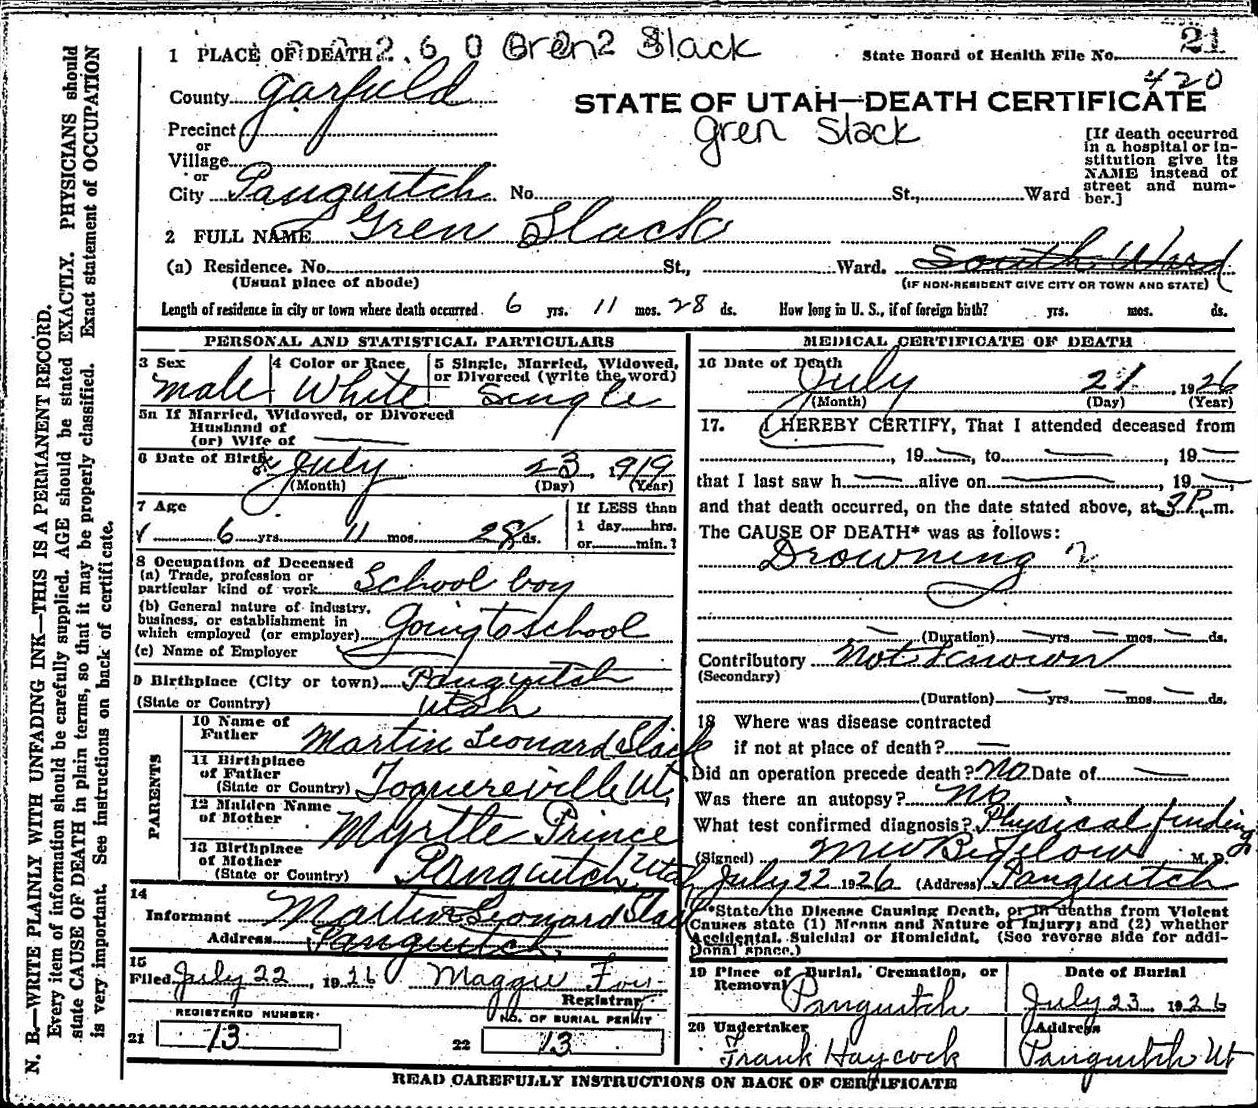 21
1 PLACE OF DEATH 2.60 Gren2 Slack State Board of Health File No.
420
County Garfield
STATE OF UTAH—DEATH CERTIFICATE
Gren Slack
Precinct
or
Village
or
City Panguitch No. St., Ward
[If death occurred
in a hospital or in-
stitution give its
NAME instead of
street and num-
ber.]
2 FULL NAME Gren Slack
(a) Residence. No. St., Ward. South Ward
(Usual place of abode) (IF NON-RESIDENT GIVE CITY OR TOWN AND STATE)
Length of residence in city or town where death occurred 6 yrs. 11 mos. 28 ds. How long in U. S., if of foreign birth? yrs. mos. ds.
PERSONAL AND STATISTICAL PARTICULARS
3 Sex 4 Color or Race 5 Single, Married, Widowed,
or Divorced (write the word)
Male White Single
5a If Married, Widowed, or Divorced
Husband of
(or) Wife of
6 Date of Birth July 23, 1919
(Month) (Day) (Year)
7 Age If LESS than
1 day hrs.
6 yrs. 11 mos. 28 ds. or min.?
8 Occupation of Deceased
(a) Trade, profession or
particular kind of work School boy
(b) General nature of industry,
business, or establishment in
which employed (or employer) Going to school
(c) Name of Employer
9 Birthplace (City or town) Panguitch
(State or Country) Utah
PARENTS
10 Name of
Father Martin Leonard Slack
11 Birthplace
of Father
(State or Country) Toquereville Ut,
12 Maiden Name
of Mother Myrtle Prince
13 Birthplace
of Mother
(State or Country) Panguitch, Utah
14
Informant Martin Leonard Slack
Address Panguitch
15
Filed July 22, 1926 Maggie
Registrar
REGISTERED NUMBER NO. OF BURIAL PERMIT
21 13 22 13
MEDICAL CERTIFICATE OF DEATH
16 Date of Death
July 21 1926
(Month) (Day) (Year)
17. I HEREBY CERTIFY, That I attended deceased from
, 19 , to , 19
that I last saw h alive on , 19 ,
and that death occurred, on the date stated above, at 3 P. m.
The CAUSE OF DEATH* was as follows:
Drowning
(Duration) yrs. mos. ds.
Contributory Not Known
(Secondary)
(Duration) yrs. mos. ds.
18 Where was disease contracted
if not at place of death?
Did an operation precede death? No Date of
Was there an autopsy? No
What test confirmed diagnosis? Physical findings
(Signed) M W Bigelow M. D.
July 22 1926 (Address) Panguitch
*State the Disease Causing Death, or in deaths from Violent
Causes state (1) Means and Nature of Injury; and (2) whether
Accidental, Suicidal or Homicidal. (See reverse side for addi-
tional space.)
19 Place of Burial, Cremation, or Date of Burial
Removal
Panguitch July 23 1926
20 Undertaker Address
Frank Haycock Panguitch Ut
READ CAREFULLY INSTRUCTIONS ON BACK OF CERTIFICATE
N. B.—WRITE PLAINLY WITH UNFADING INK—THIS IS A PERMANENT RECORD.
Every item of information should be carefully supplied. AGE should be stated EXACTLY. PHYSICIANS should
state CAUSE OF DEATH in plain terms, so that it may be properly classified. Exact statement of OCCUPATION
is very important. See instructions on back of certificate.